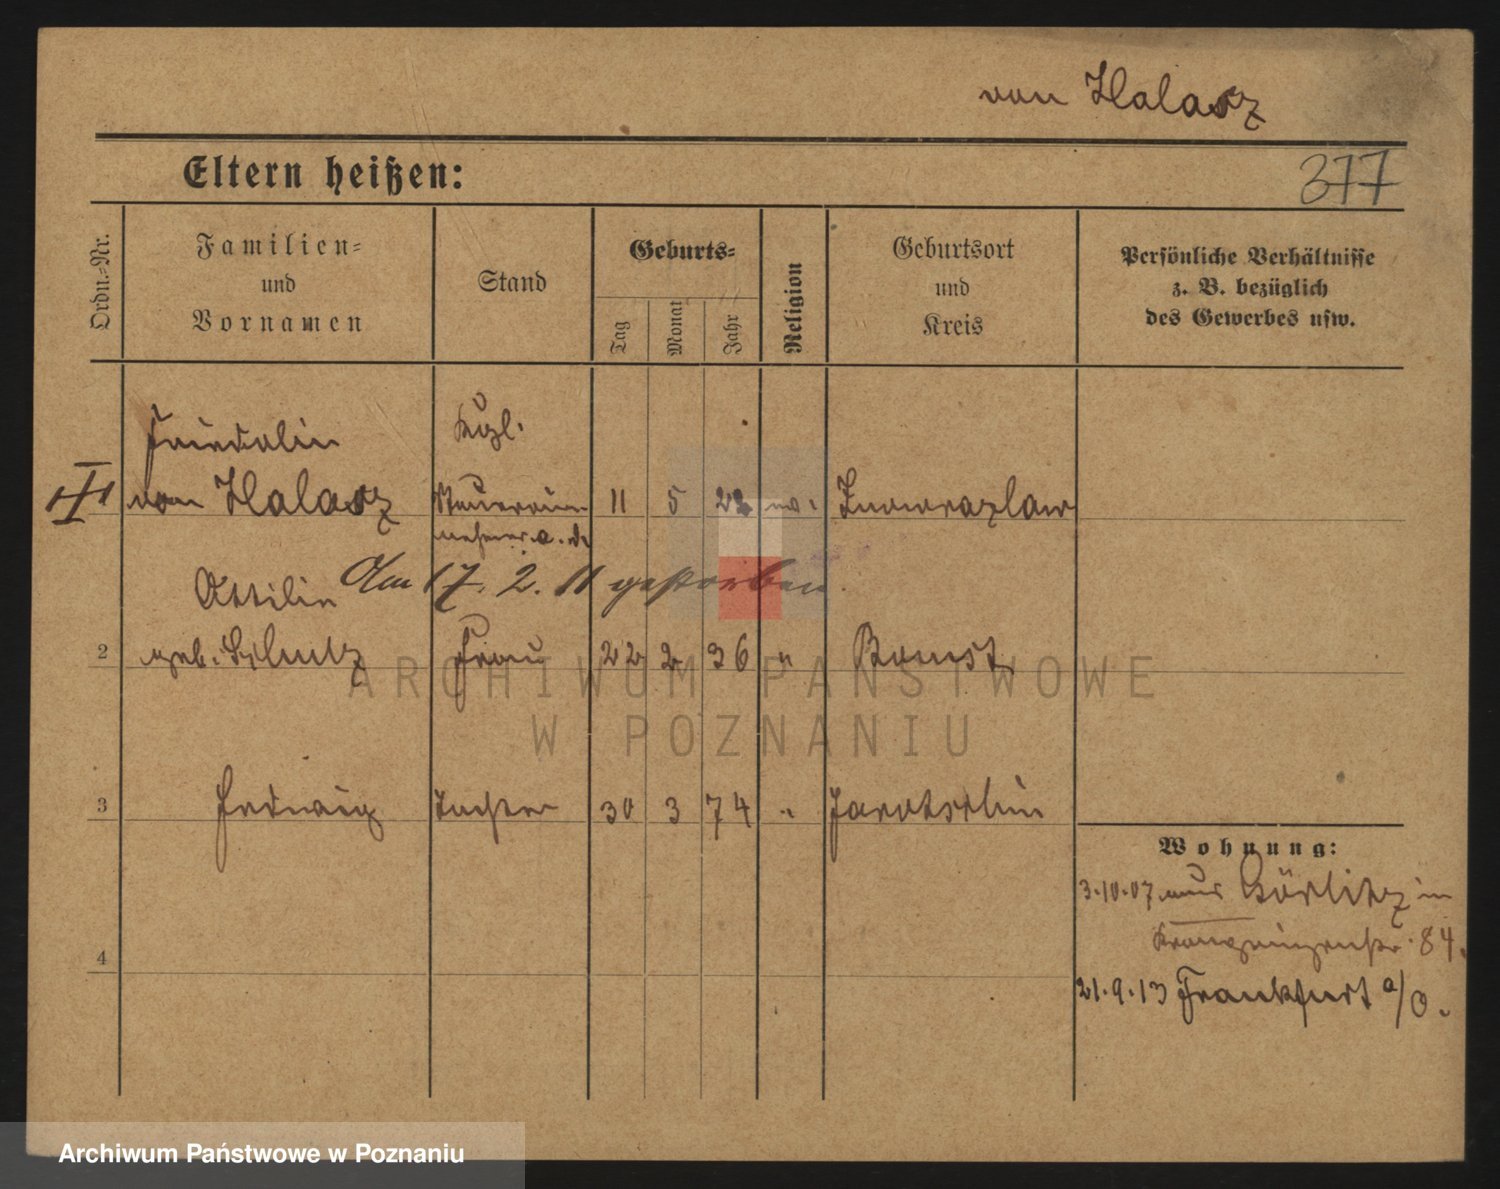 von Halasz
Eltern heißen:
377
Ordn.-Nr.
Familien-
und
Vornamen
Stand
Geburts-
Tag
Monat
Jahr
Religion
Geburtsort
und
Kreis
Persönliche Verhältnisse
z. B. bezüglich
des Gewerbes usw.
Friedolin
Kgl.
von Halasz
Steuerein
11 5 22
Inowrazlaw
nehmer a. D.
Am 17. 2. 11 gestorben.
Ottilie
2 geb. Schulz Frau 22 2 36 " Bomst
ARCHIWUM PAŃSTWOWE
W POZNANIU
3 Hedwig Tochter 30 3 74 " Jarotschin
Wohnung:
3.10.07 aus Görlitz in
Kronprinzenstr. 84.
4
21.9.13 Frankfurt a/O.
Archiwum Państwowe w Poznaniu